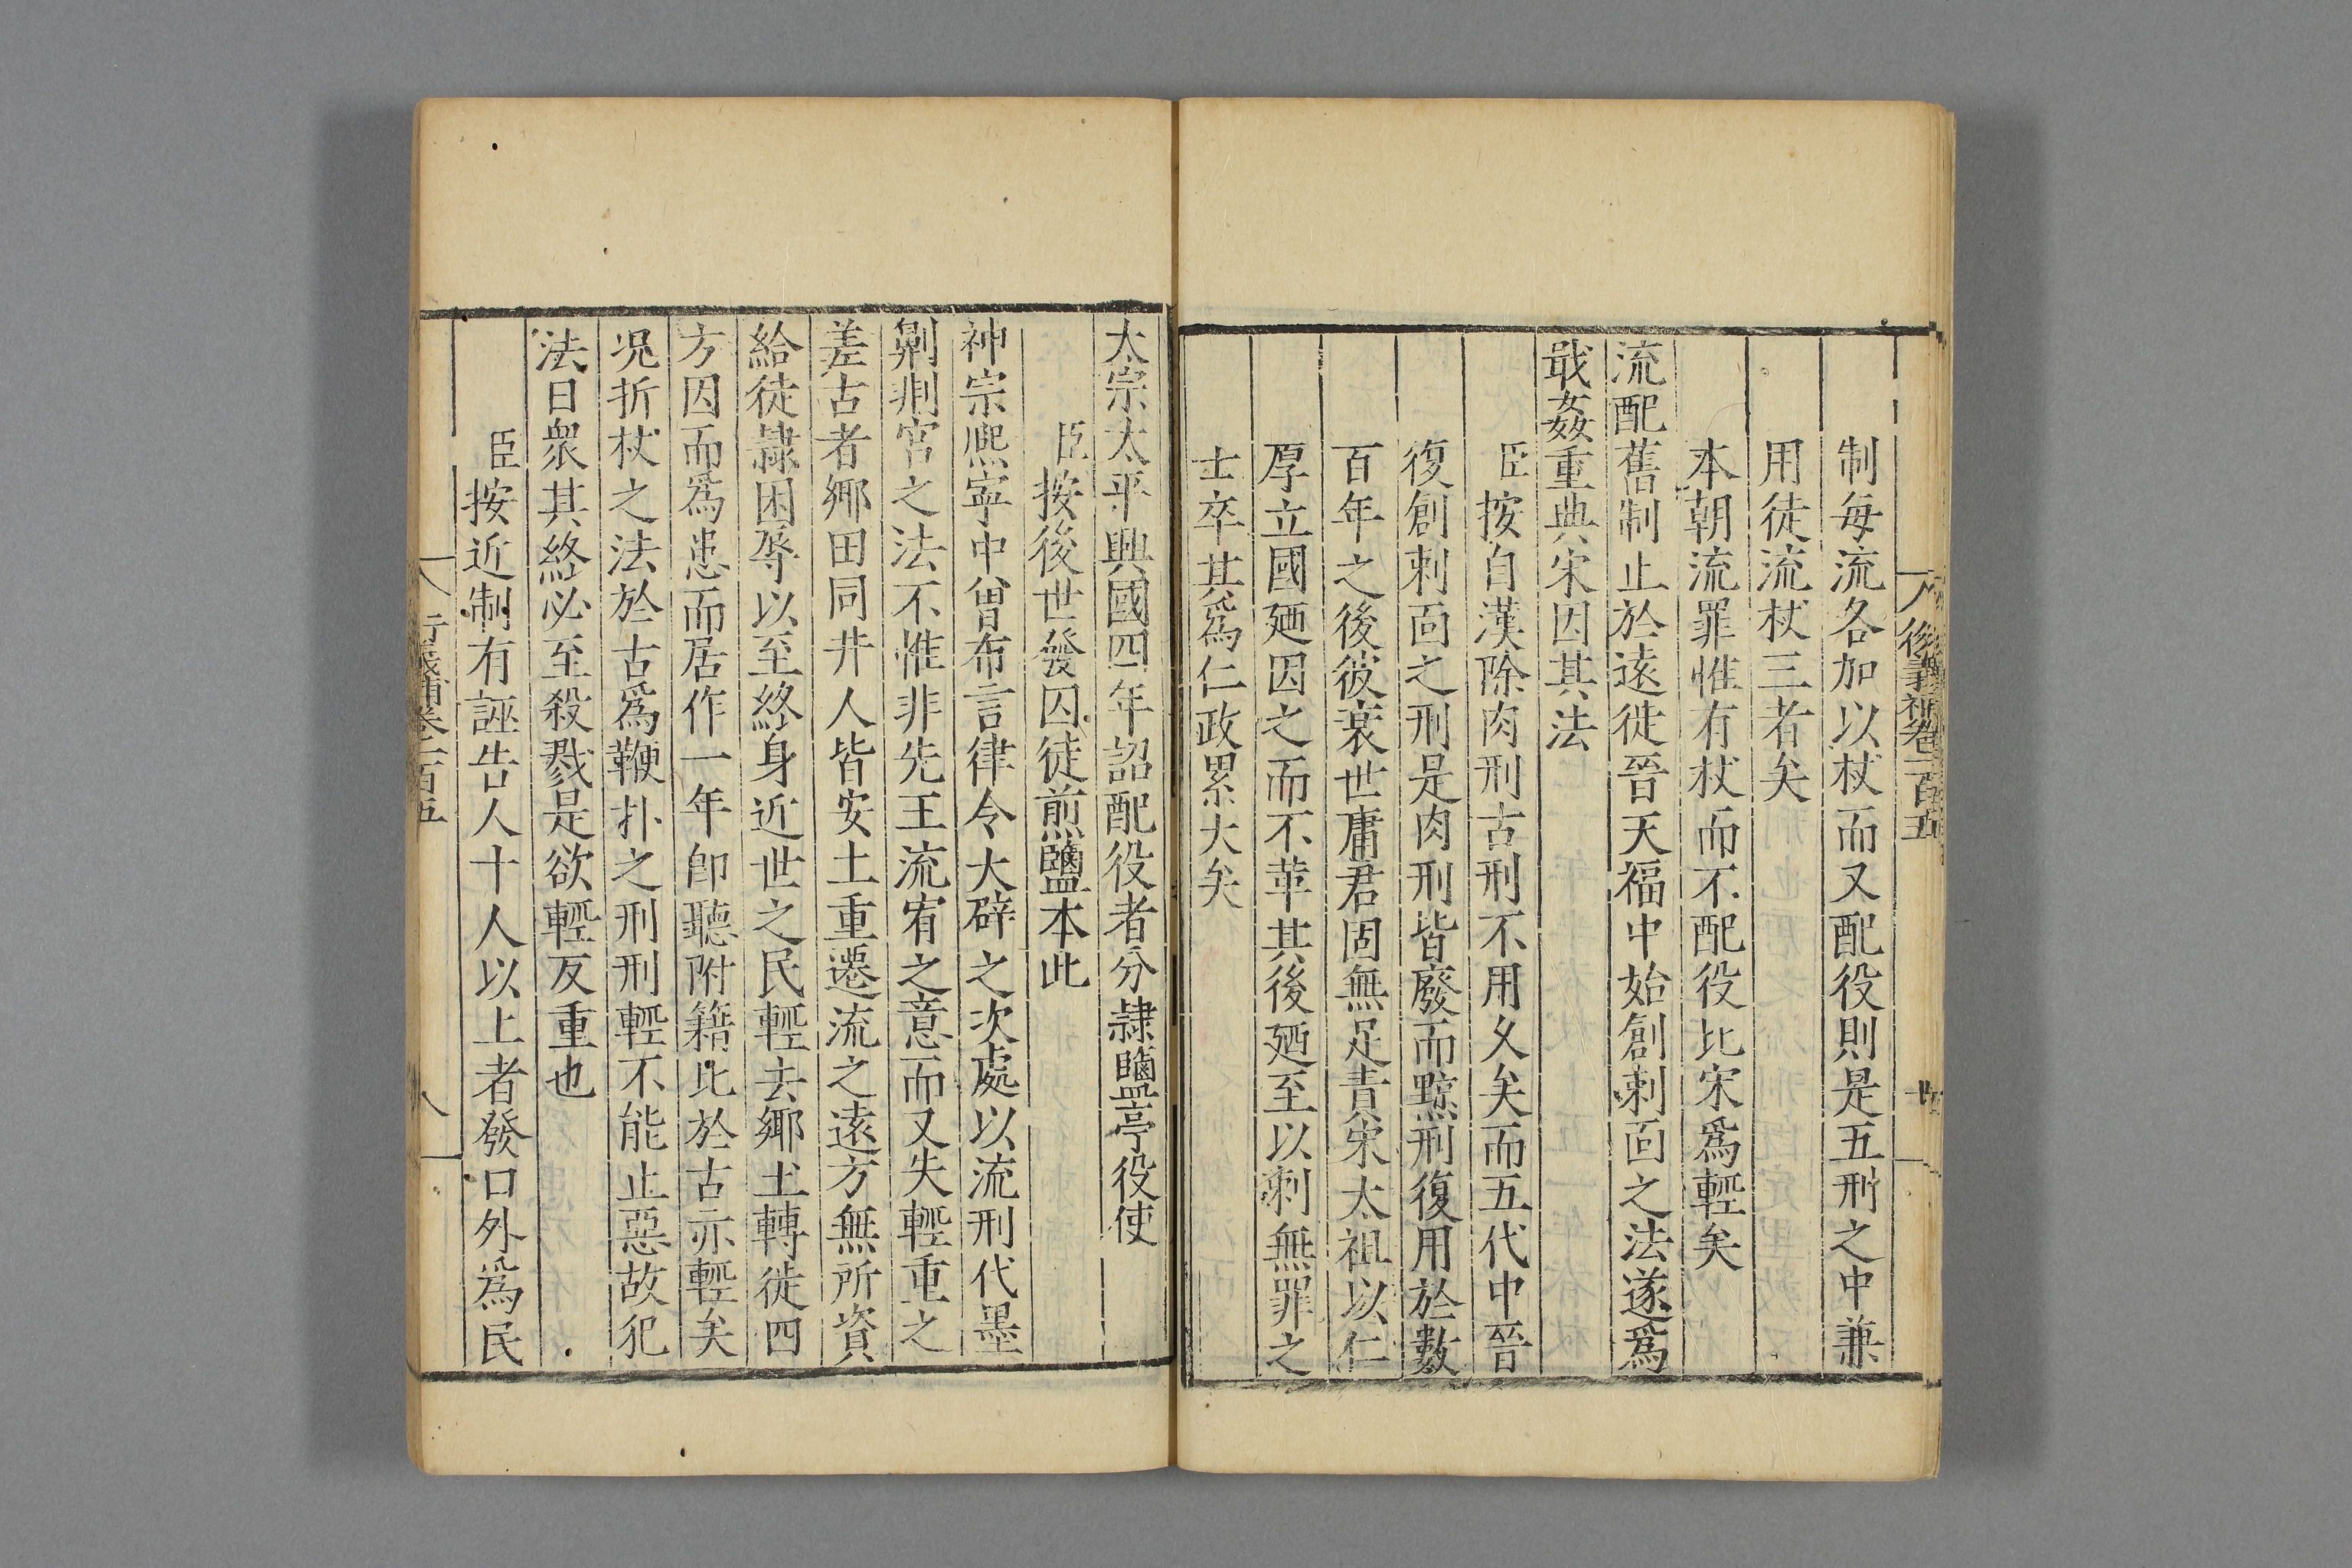 制每流各加以杖而又配役則是五刑之中兼
用徒流杖三者矣
本朝流罪惟有杖而不配役比宋爲輕矣
流配舊制止於遠徙晉天福中始創刺靣之法遂爲
戢姦重典宋因其法
臣按自漢除肉刑古刑不用久矣而五代中晉
復創刺靣之刑是肉刑皆廢而黥刑復用於數
百年之後彼衰世庸君固無足責宋太祖以仁
厚立國廼因之而不革其後廼至以刺無罪之
士卒其爲仁政累大矣
太宗太平興國四年詔配役者分隷鹽亭役使
臣按後世發囚徒煎鹽本此
神宗熈寧中曾布言律令大辟之次處以流刑代墨
劓剕宮之法不惟非先王流宥之意而又失輕重之
差古者鄉田同井人皆安土重遷流之遠方無所資
給徒隷困辱以至終身近世之民輕去鄉土轉徙四
方固而爲患而居作一年卽聽附籍比於古亦輕矣
况折杖之法於古爲鞭扑之刑刑輕不能止惡故犯
法日衆其終必至殺戮是欲輕反重也
臣按近制有誣告人十人以上者發口外爲民